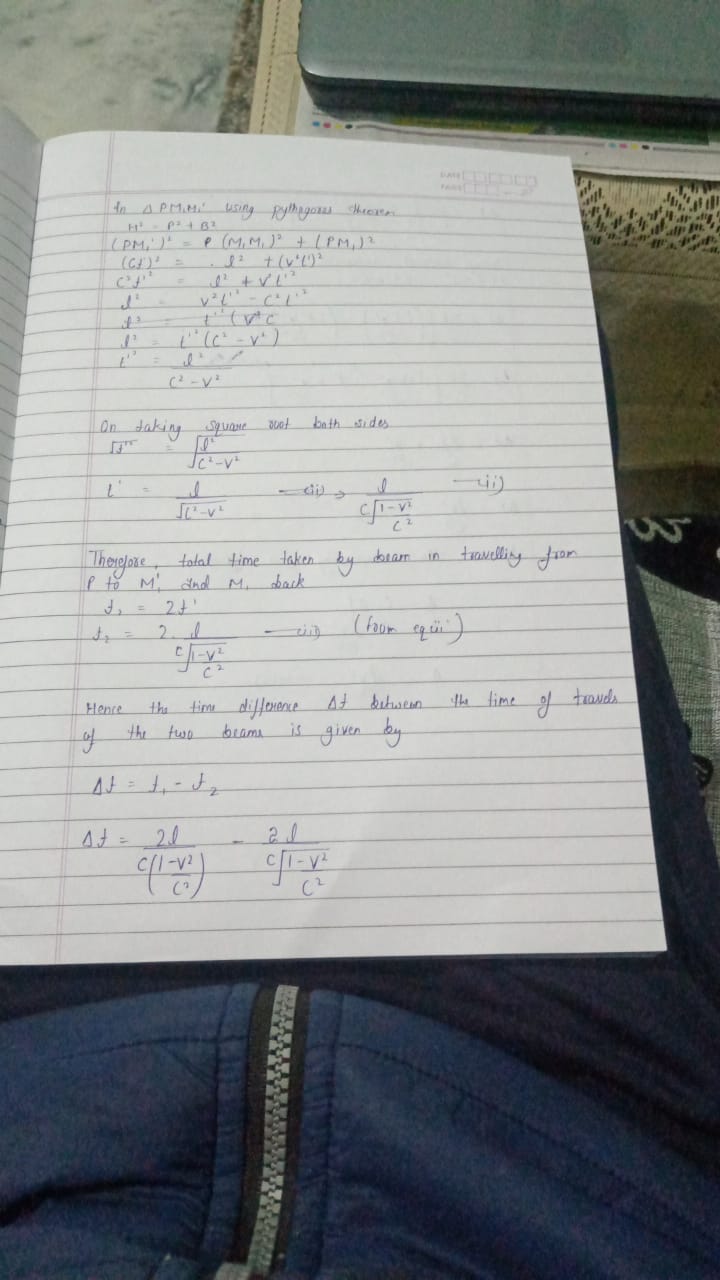 DATE
PAGE
In Δ PM₁M₁' using pythagoras theorem
H² = P² + B²
(PM₁')² = P (M₁M₁)² + (PM₁)²
(ct')² = l² + (v²t')²
c²t'² = l² + v²t'²
l² = v²t'² - c²t'²
l² = t'² (v² c
l² = t'² (c² - v²)
t'² = l² / c² - v²
On taking square root both sides
√t'² = √l² / c² - v²
t' = l / √c² - v² —(i) ⇒ l / c√1 - v²/c² —ii)
Therefore, total time taken by beam in travelling from
P to M₁' and M₁ back
t₂ = 2t'
t₂ = 2. l / c√1 - v²/c² —iii) (from eq ii)
Hence the time difference Δt between the time of travels
of the two beams is given by
Δt = t₁ - t₂
Δt = 2l / c(1 - v²/c²) - 2l / c√1 - v²/c²